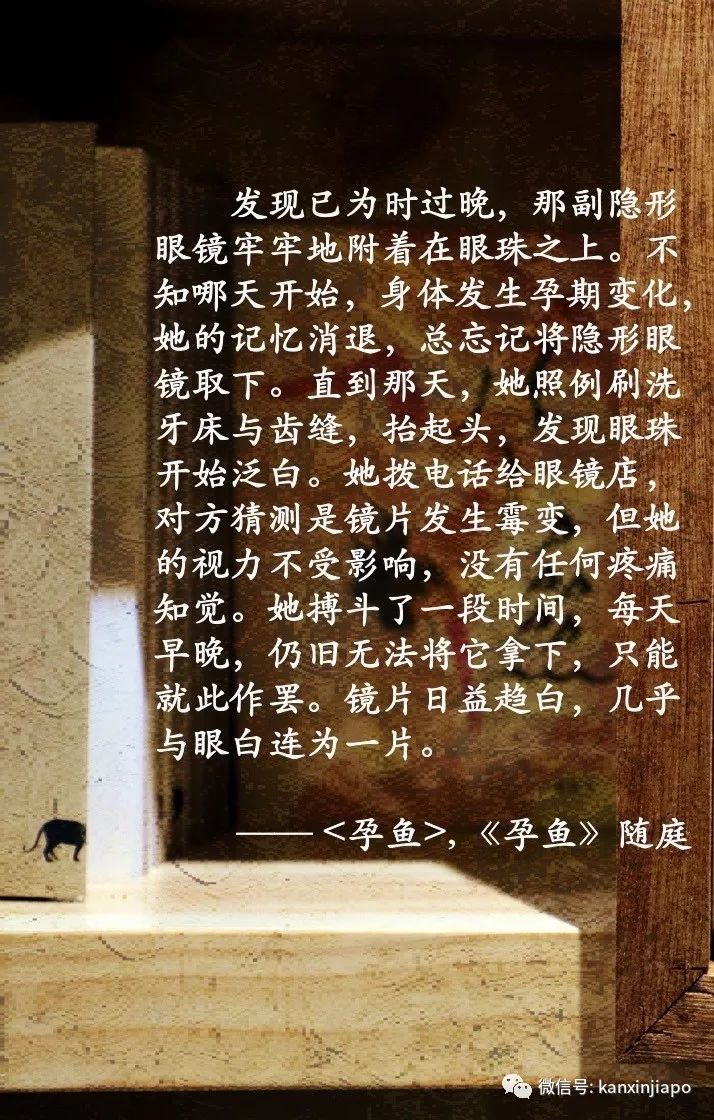 发现已为时过晚，那副隐形
眼镜牢牢地附着在眼珠之上。不
知哪天开始，身体发生孕期变化，
她的记忆消退，总忘记将隐形眼
镜取下。直到那天，她照例刷洗
牙床与齿缝，抬起头，发现眼珠
开始泛白。她拨电话给眼镜店，
对方猜测是镜片发生霉变，但她
的视力不受影响，没有任何疼痛
知觉。她搏斗了一段时间，每天
早晚，仍旧无法将它拿下，只能
就此作罢。镜片日益趋白，几乎
与眼白连为一片。
—— <孕鱼>，《孕鱼》随庭
微信号: kanxinjiapo